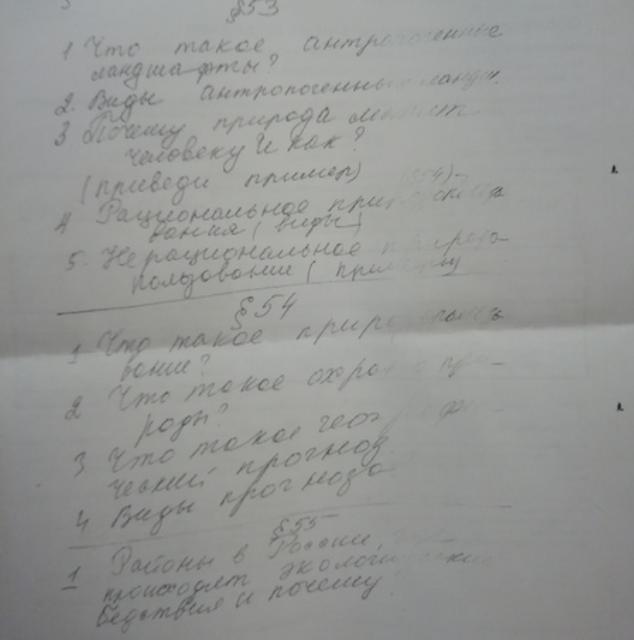 §53
1 Что такое антропогенные
ландшафты?
2. Виды антропогенных ландш.
3 Почему природа
человеку и как?
(приведи пример) (§54)
4 Рациональное природопользо
вания (виды)
5. Нерациональное природо
пользовании (примеры)
§54
1 Что такое природопользо
вание?
2 Что такое охрана при-
роды?
3 Что такое географи-
ческий прогноз.
4 Виды прогноза
§55
1 Районы в России, где
происходят экологические
бедствия и почему?